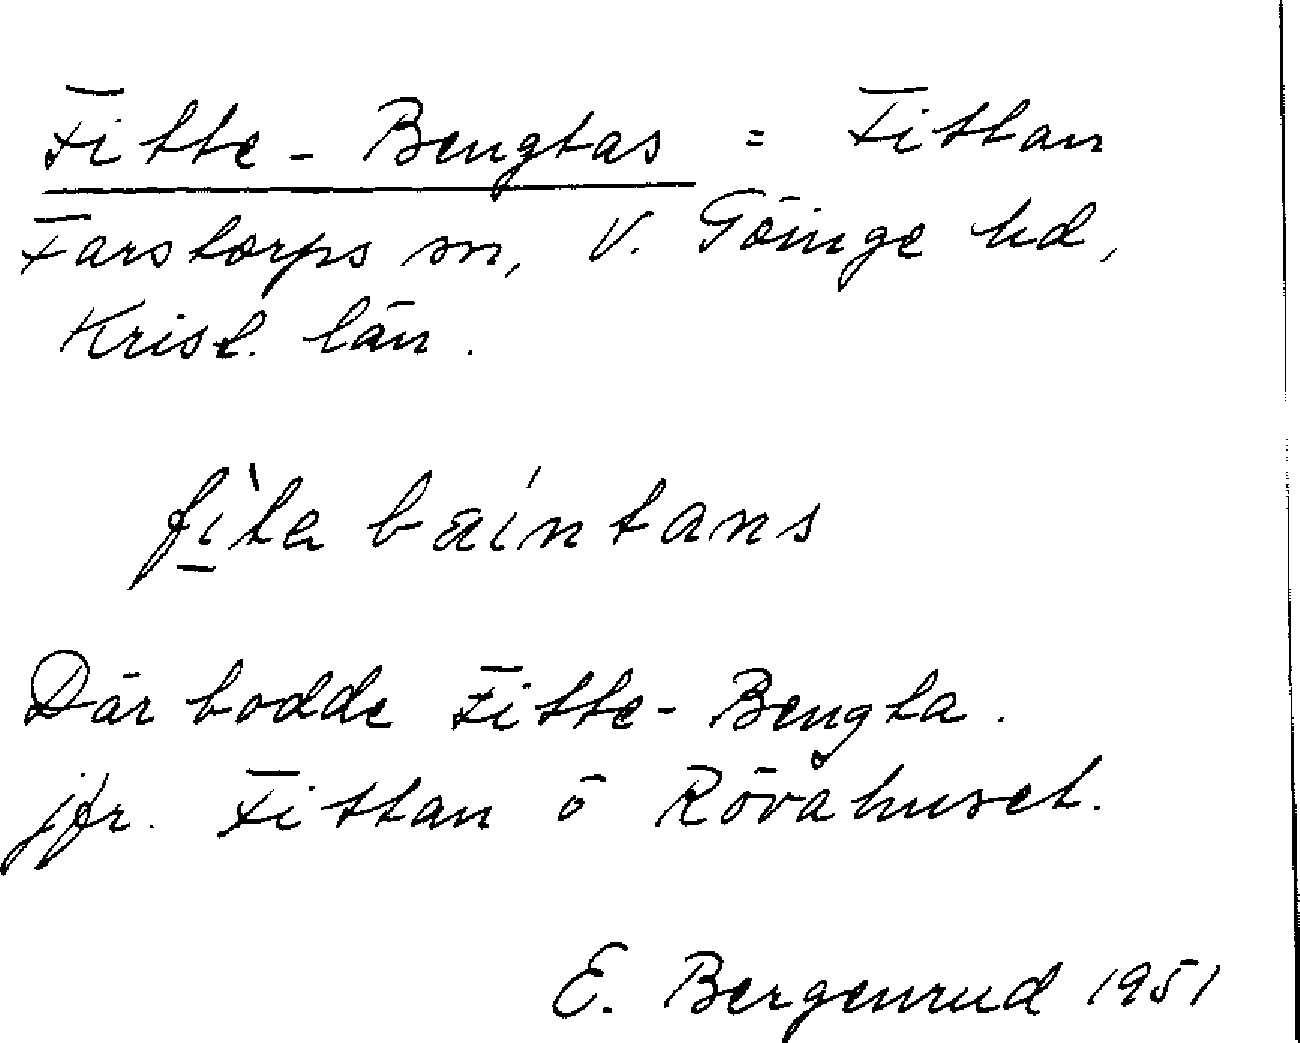 Fitte-Bengtas = Fittan
Farstorps sn, V. Göinge hd,
Krist. län.
fìta baíntans
Där bodde Fitte-Bengta.
jfr. Fittan ö Rövåhuset.
E. Bergenrud 1951